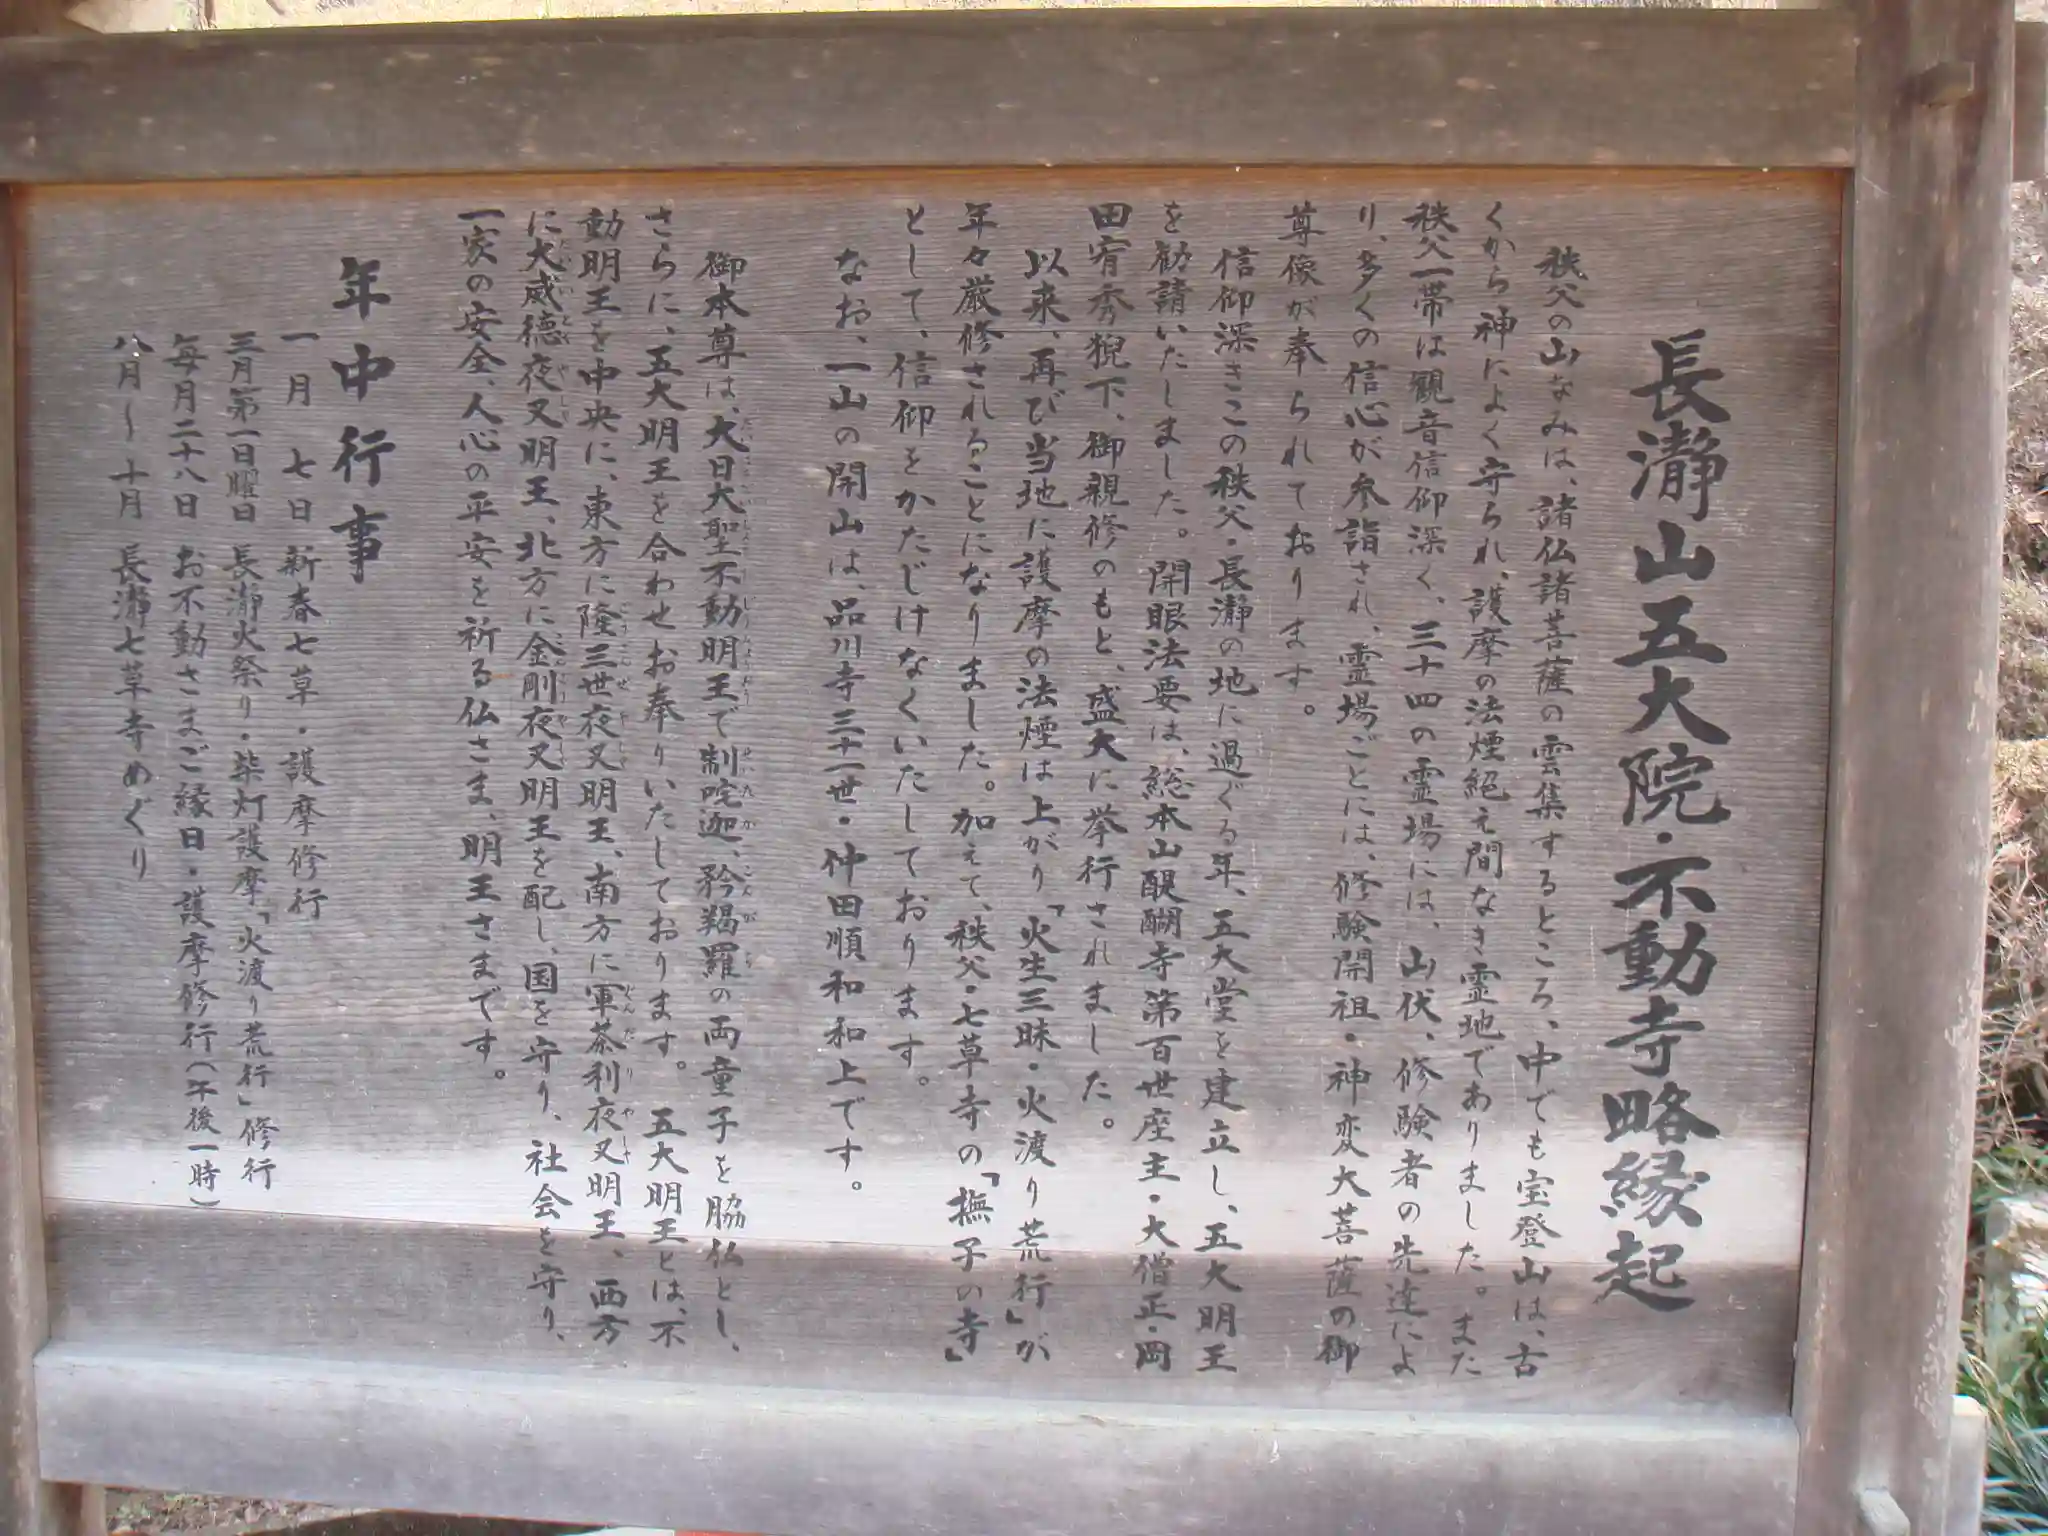 長瀞山五大院・不動寺略縁起
秩父の山なみは、諸仏諸菩薩の雲集するところ、中でも宝登山は、古
くから神によく守られ、護摩の法煙絶え間なき霊地でありました。また
秩父一帯は観音信仰深く、三十四の霊場には、山伏、修験者の先達によ
り、多くの信心が参詣され、霊場ごとには、修験開祖・神変大菩薩の御
尊像が奉られております。
信仰深きこの秩父・長瀞の地に過ぐる年、五大堂を建立し、五大明王
を勧請いたしました。開眼法要は、総本山醍醐寺第百世座主・大僧正・岡
田宥秀猊下、御親修のもと、盛大に挙行されました。
以来、再び当地に護摩の法煙は上がり「火生三昧・火渡り荒行」が
年々厳修されることになりました。加えて、秩父・七草寺の「撫子の寺」
として、信仰をかたじけなくいたしております。
なお、一山の開山は、品川寺三十一世・仲田順和和上です。
御本尊は、大日大聖不動明王で制吒迦、矜羯羅の両童子を脇仏とし、
さらに、五大明王を合わせお奉りいたしております。五大明王とは、不
動明王を中央に、東方に隆三世夜叉明王、南方に軍荼利夜叉明王、西方
に大威徳夜叉明王、北方に金剛夜叉明王を配し、国を守り、社会を守り、
一家の安全、人心の平安を祈る仏さま、明王さまです。
年中行事
一月 七日 新春七草・護摩修行
三月第一日曜日 長瀞火祭り・柴灯護摩「火渡り荒行」修行
毎月二十八日 お不動さまご縁日・護摩修行(午後一時)
八月〜十月 長瀞七草寺めぐり